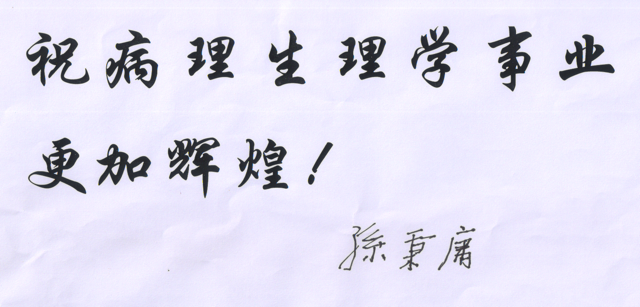 祝病理生理学事业
更加辉煌!
孫秉庸